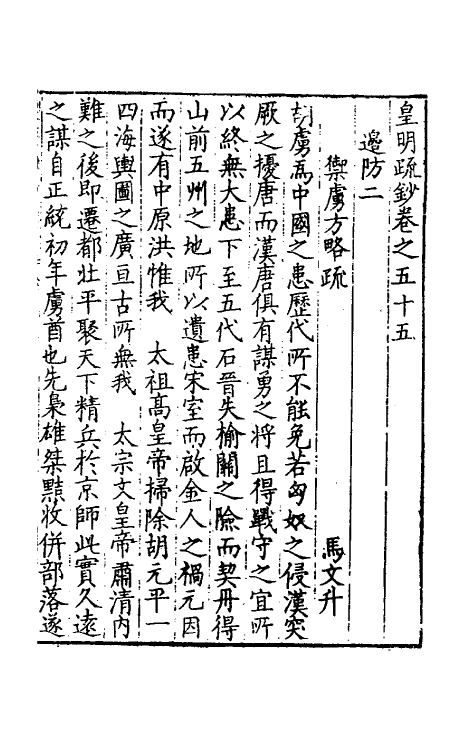 皇明疏鈔卷之五十五
邊防二
禦虜方略疏　馬文升
胡虜爲中國之患歷代所不能免若匈奴之侵漢突
厥之擾唐而漢唐俱有謀勇之將且得戰守之宜所
以終無大患下至五代石晉失榆關之險而契丹得
山前五州之地所以遺患宋室而啟金人之禍元因
而遂有中原洪惟我　太祖高皇帝掃除胡元平一
四海輿圖之廣亘古所無我　太宗文皇帝肅清内
難之後即遷都北平聚天下精兵於京師此實久遠
之謀自正統初年虜酋也先梟雄桀黠收併部落遂